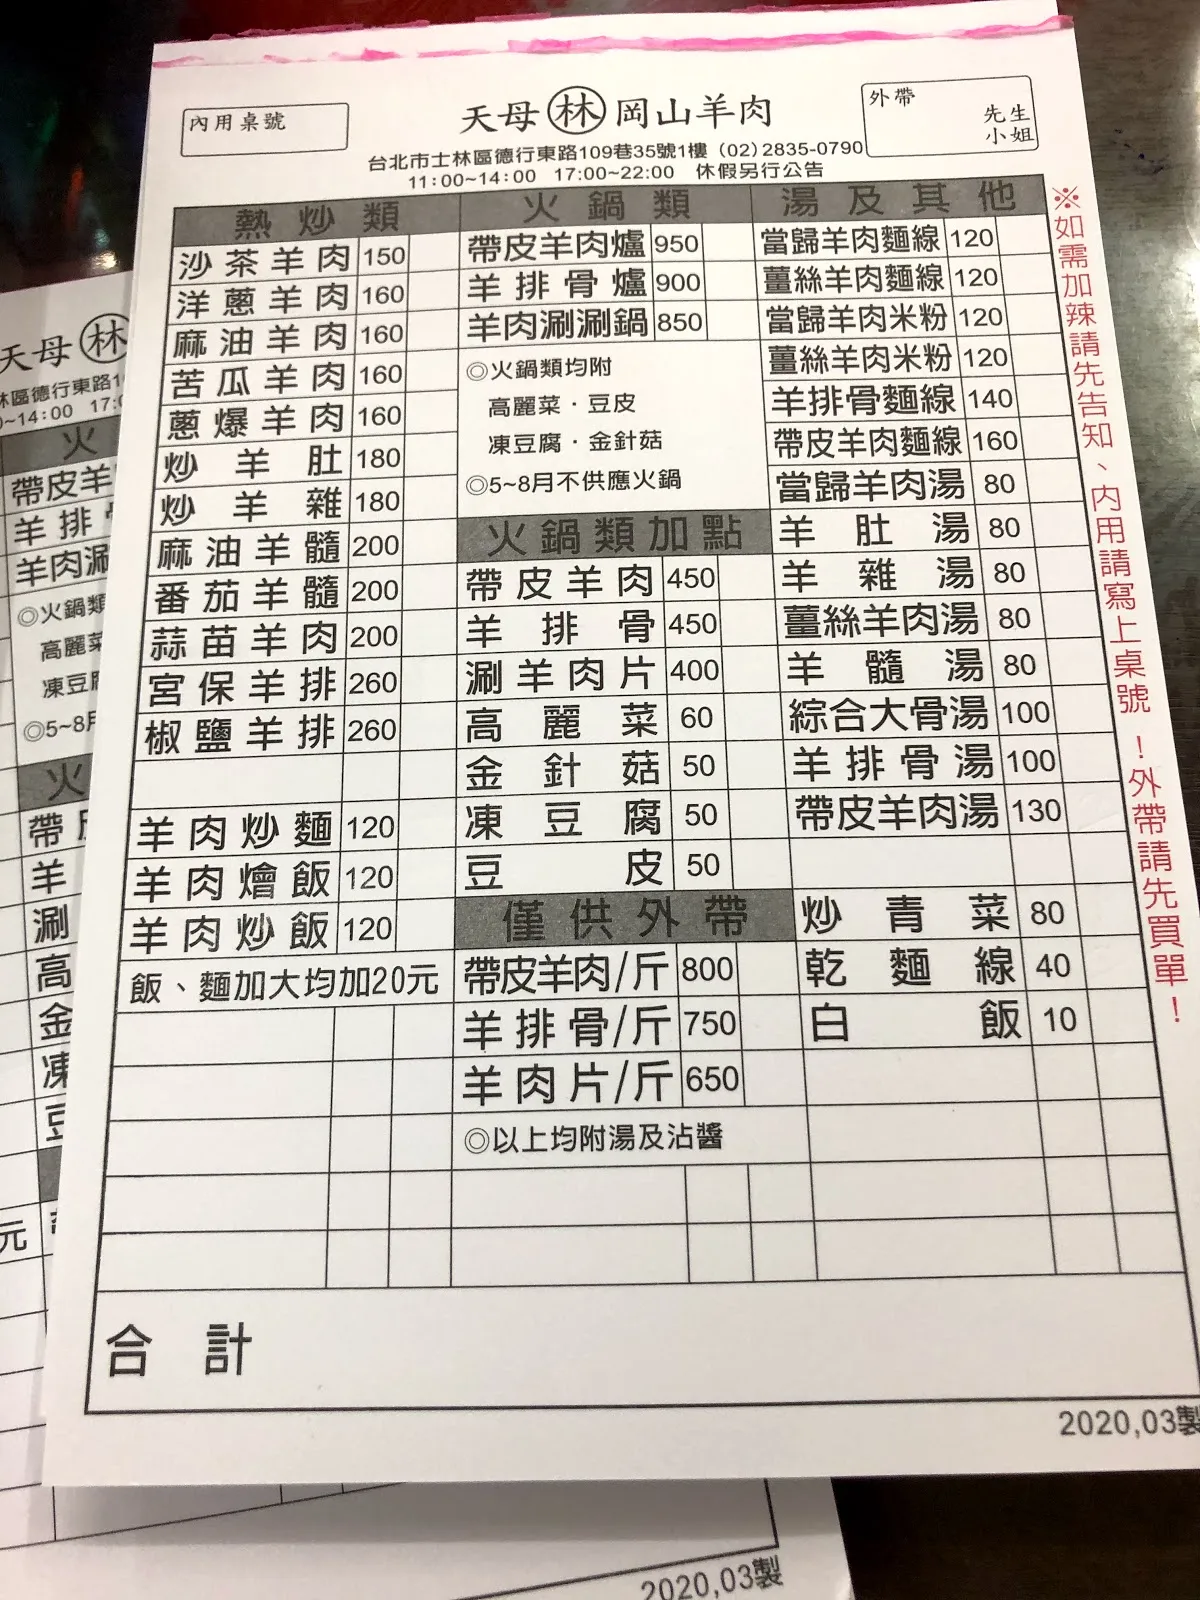 內用桌號
天母 林 岡山羊肉
外帶
先生
小姐
台北市士林區德行東路109巷35號1樓 (02)2835-0790
11:00~14:00 17:00~22:00 休假另行公告
熱炒類
沙茶羊肉 150
洋蔥羊肉 160
麻油羊肉 160
苦瓜羊肉 160
蔥爆羊肉 160
炒羊肚 180
炒羊雜 180
麻油羊髓 200
番茄羊髓 200
蒜苗羊肉 200
宮保羊排 260
椒鹽羊排 260
羊肉炒麵 120
羊肉燴飯 120
羊肉炒飯 120
飯、麵加大均加20元
火鍋類
帶皮羊肉爐 950
羊排骨爐 900
羊肉涮涮鍋 850
◎火鍋類均附
高麗菜·豆皮
凍豆腐·金針菇
◎5~8月不供應火鍋
火鍋類加點
帶皮羊肉 450
羊排骨 450
涮羊肉片 400
高麗菜 60
金針菇 50
凍豆腐 50
豆皮 50
僅供外帶
帶皮羊肉/斤 800
羊排骨/斤 750
羊肉片/斤 650
◎以上均附湯及沾醬
湯及其他
當歸羊肉麵線 120
薑絲羊肉麵線 120
當歸羊肉米粉 120
薑絲羊肉米粉 120
羊排骨麵線 140
帶皮羊肉麵線 160
當歸羊肉湯 80
羊肚湯 80
羊雜湯 80
薑絲羊肉湯 80
羊髓湯 80
綜合大骨湯 100
羊排骨湯 100
帶皮羊肉湯 130
炒青菜 80
乾麵線 40
白飯 10
※如需加辣請先告知、內用請寫上桌號！外帶請先買單！
合計
2020,03製
天母 林
林區德行東路1
~14:00 17:
火
帶皮羊
羊排
羊肉涮
◎火鍋類
高麗菜
凍豆腐
◎5~8月
火
帶
羊
涮
高
金
凍
豆
元
2020,03製